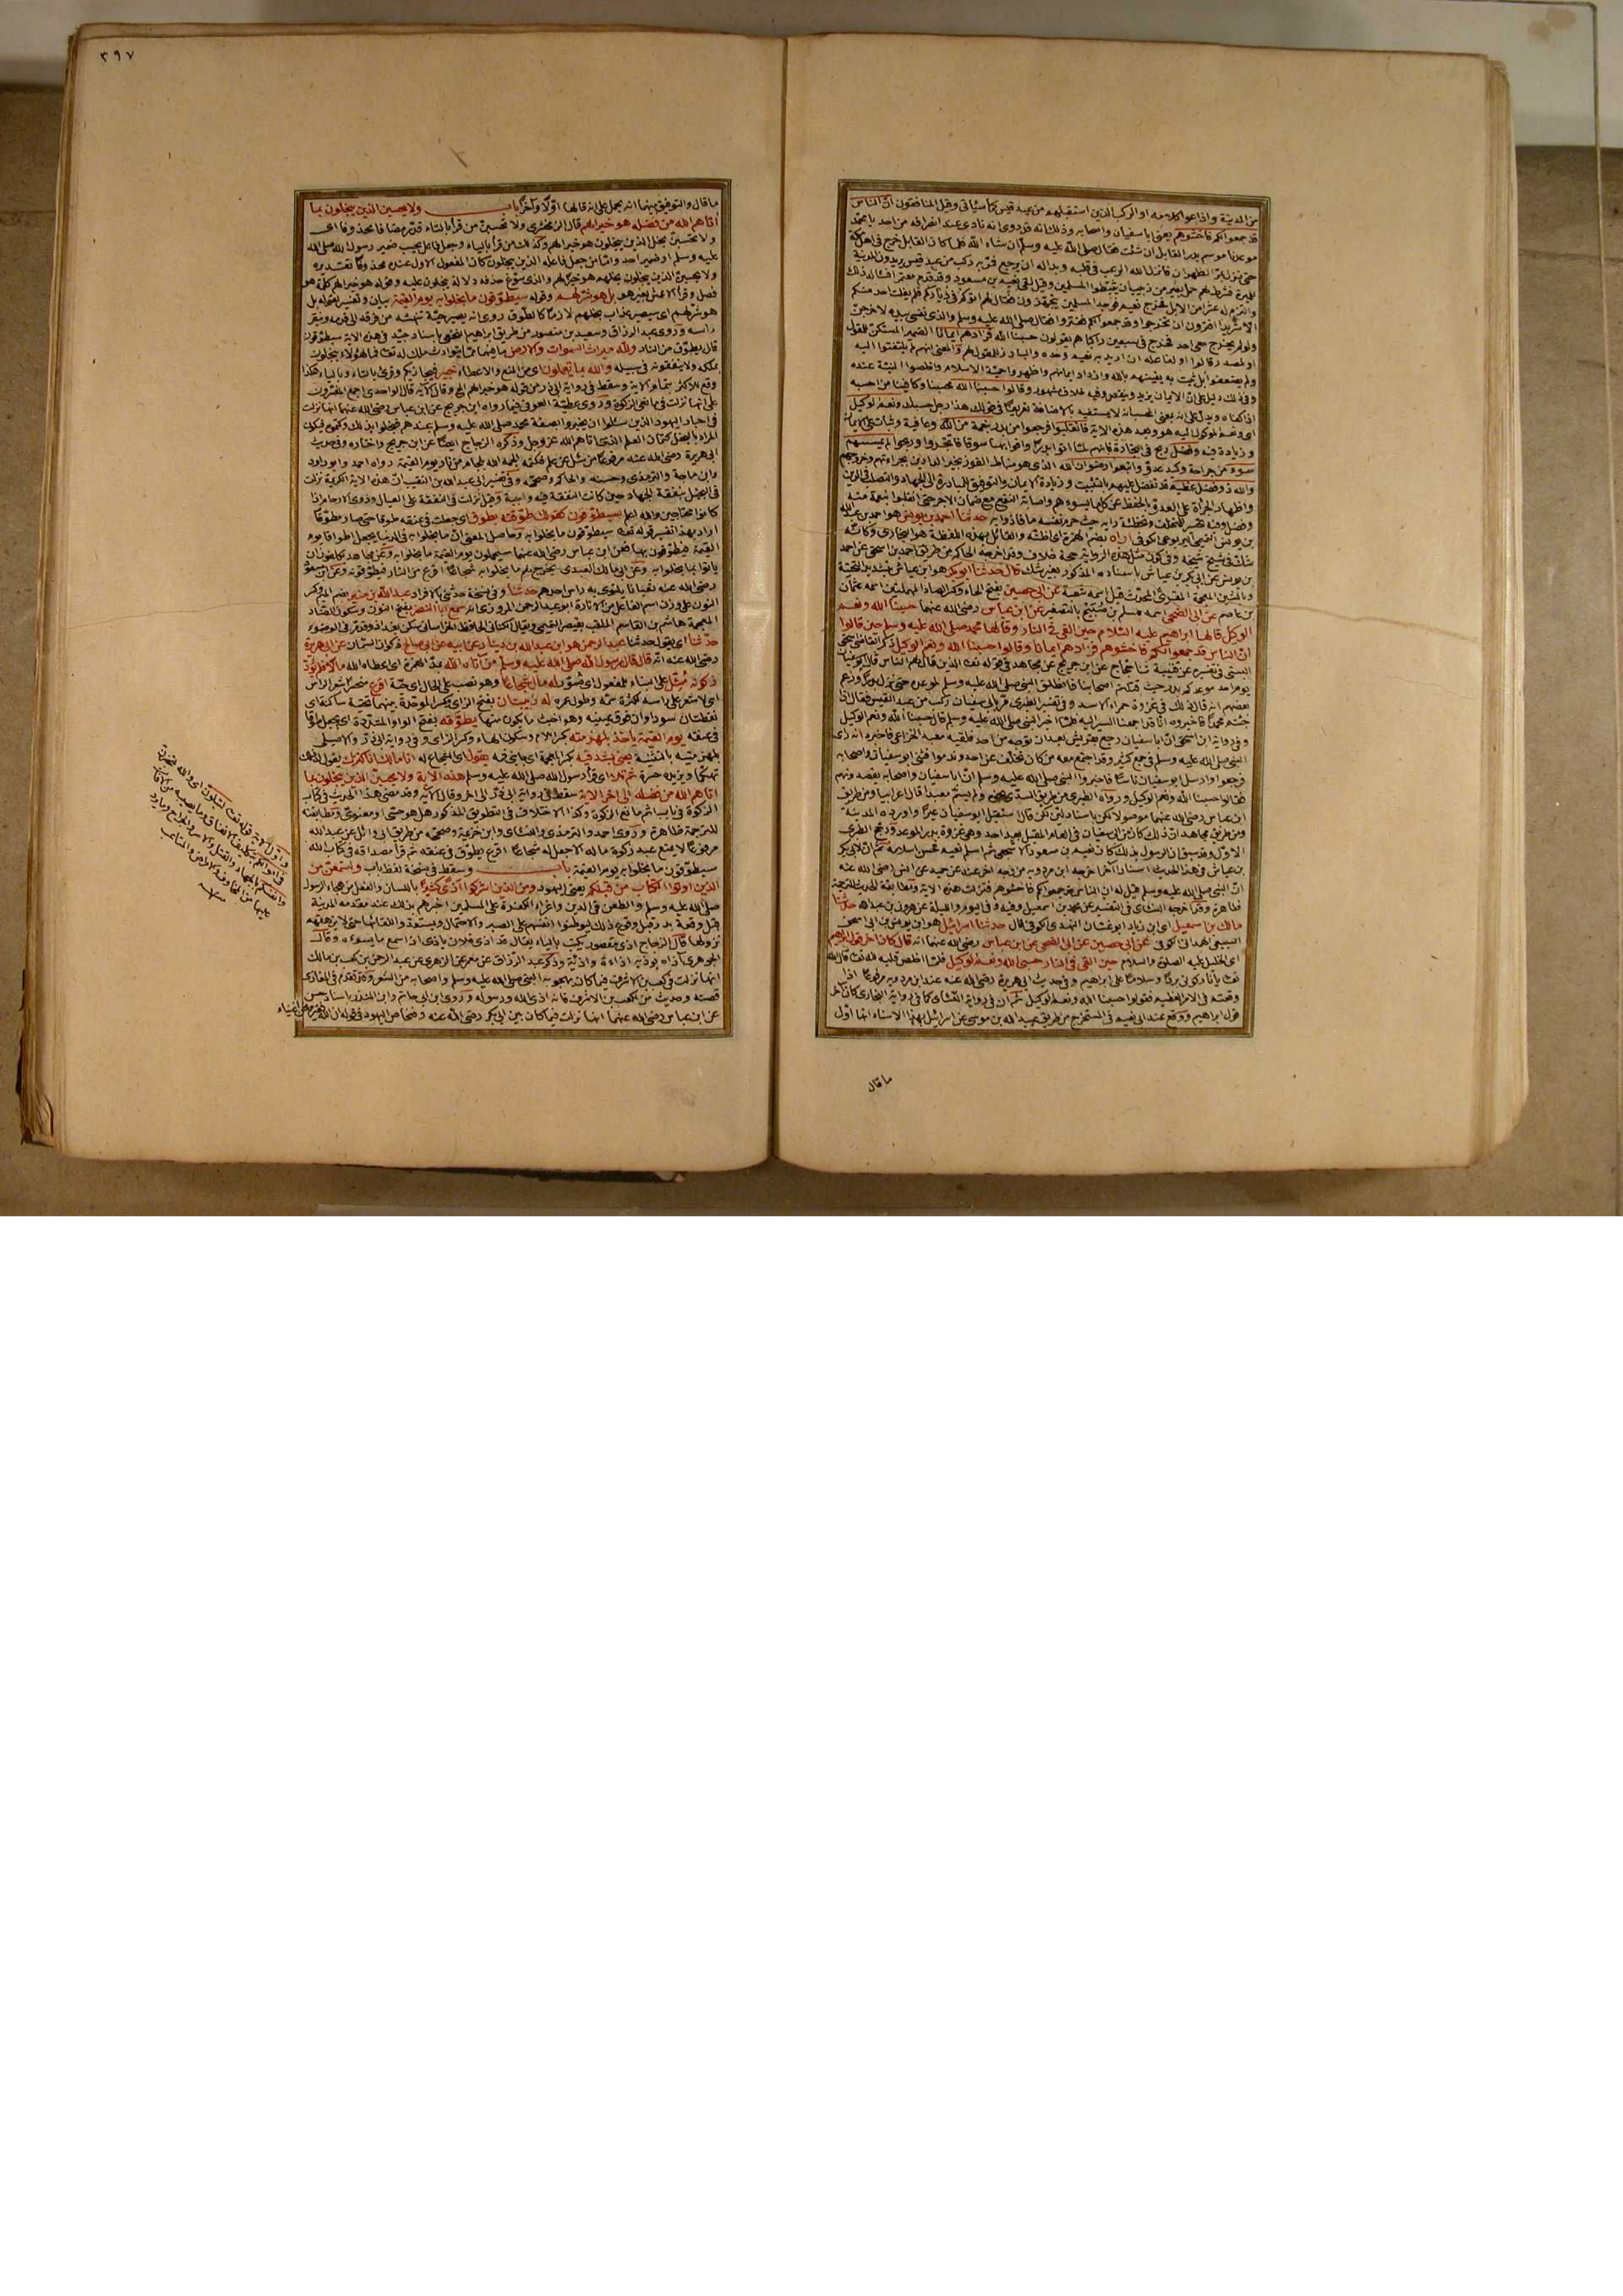 من المدينة واذاعوا كلامه او الركب الذين استقبلهم من عبد قيس كما سيأتى وقيل المنافقون انّ الناس
قد جمعوا لكم فاخشوهم يعنى ابا سفيان واصحابه وذلك انه قد روى انه نادى عند انصرافه من احد يا محمد
موعدنا موسم بدر القابل ان شئت فقال صلى الله عليه وسلم ان شاء الله فلما كان القابل خرج فى اهل مكة
حتى نزل بمر الظهران فانزل الله الرعب فى قلبه وبدا له ان يرجع فمر به ركب من عبد قيس يريدون المدينة
للميرة فشرط لهم حمل بعير من زبيب ان ثبّطوا المسلمين وقيل لقى نعيم بن مسعود وقد قدم معتمرا فساله ذلك
والتزم له عشرا من الابل فخرج نعيم فوجد المسلمين يتجهزون فقال لهم اتوكم فى دياركم فلم يفلت احد منكم
الا شريد افترون ان تخرجوا وقد جمعوا لكم ففتروا فقال صلى الله عليه وسلم والذى نفسى بيده لاخرجنّ
ولو لم يخرج معى احد فخرج فى سبعين راكبا هم يقولون حسبنا الله فزادهم ايمانا الضمير المستكن للمقول
او لمصدر قالوا او لفاعله ان اريد به نعيم وحده والبارز للمقول لهم والمعنى انهم لم يلتفتوا اليه
ولم يضعفوا بل ثبت به يقينهم بالله وازداد ايمانهم واظهروا حمية الاسلام واخلصوا النية عنده
وفى ذلك دليل على انّ الايمان يزيد وينقص وفيه خلاف مشهور وقالوا حسبنا الله محسبنا وكافينا من احسبه
اذا كفاه ويدل على انه بمعنى المحسب انه لا يستفيد بالاضافة تعريفا فى قولك هذا رجل حسبك ونعم الوكيل
اى ونعم الموكول اليه هو وبعد هذه الاية فانقلبوا فرجعوا من بدر بنعمة من الله وعافية وثبات على الايمان
وزيادة فيه وفضل ربح فى التجارة فانهم لمّا اتوا بدرا وافوا بها سوقا فاتجروا وربحوا لم يمسسهم
سوء من جراحة وكيد عدوّ واتبعوا رضوان الله الذى هو مناط الفوز بخير الدارين بجراءتهم وخروجهم
والله ذو فضل عظيم قد تفضل عليهم بالتثبيت وزيادة الايمان والتوفيق للمبادرة الى الجهاد والتصلب فى الدين
واظهار الجرأة على العدو وبالحفظ عن كل ما يسوءهم واصابة النفع مع ضمان الاجر حتى انقلبوا بنعمة منه
وفضل وفيه تحسير للمتخلف وتخطئة رايه حيث حرم نفسه ما فازوا به حدثنا احمد بن يونس هو احمد بن عبد الله
بن يونس التميمى اليربوعى الكوفى اراه بضم الهمزة اى اظنّه والقائل بهذه اللفظة هو البخارى وكانّه
شكّ فى شيخ شيخه وفى كون مثل هذه الرواية حجة خلاف وقد اخرجه الحاكم من طريق احمد بن اسحق عن احمد
بن يونس عن ابى بكر بن عياش باسناده المذكور بغير شك قال حدثنا ابو بكر هو ابن عياش بتشديد التحتية
وبالشين المعجمة المقرئ المحدّث قيل اسمه شعبة عن ابى حصين بفتح الحاء وكسر الصاد المهملتين اسمه عثمان
بن عاصم عن ابى الضحى اسمه مسلم بن صُبَيْح بالتصغير عن ابن عباس رضى الله عنهما حسبنا الله ونعم
الوكيل قالها ابراهيم عليه السّلام حين القى فى النار وقالها محمد صلى الله عليه وسلم حين قالوا
انّ الناس قد جمعوا لكم فاخشوهم فزادهم ايمانا وقالوا حسبنا الله ونعم الوكيل ذكر القاضى اسحق
البستى فى تفسيره عن قتيبة ثنا حجاج عن ابن جريج عن مجاهد فى قوله تعالى الذين قال لهم الناس قال ابو سفيان
يوم احد موعدكم بدر حيث قتلتم اصحابنا فانطلق النبى صلى الله عليه وسلم لموعده حتى نزل بدرا وزعم
بعضهم انه قال ذلك فى غزوة حمراء الاسد وفى تفسير الطبرى مرّ بابى سفيان ركب من عبد القيس فقال اذا
جئتم محمدا فاخبروه انّا قد اجمعنا السير اليه فلمّا اخبر النبى صلى الله عليه وسلم قال حسبنا الله ونعم الوكيل
وفى رواية ابن اسحق انّ ابا سفيان رجع بقريش بعد ان توجه من احد فلقيه معبد الخزاعى فاخبره انه راى
النبى صلى الله عليه وسلم فى جمع كثير وقد اجتمع معه من كان تخلف عن احد وندموا فثنى ابو سفيان واصحابه
فرجعوا وارسل ابو سفيان ناسا فاخبروا النبى صلى الله عليه وسلم انّ ابا سفيان واصحابه يقصدونهم
فقالوا حسبنا الله ونعم الوكيل ورواه الطبرى من طريق السدى نحوه ولم يسمّ معبدا قال اعرابيا ومن طريق
ابن عباس رضى الله عنهما موصولا لكن باسناد ليّن لكن قال استقبل ابو سفيان عيرا واردة المدينة
ومن طريق مجاهد ان ذلك كان من ابى سفيان فى العام المقبل بعد احد وهى غزوة بدر الموعد ورجح الطبرى
الاوّل وقد سبق ان الرسول بذلك كان نعيم بن مسعود الاشجعى ثم اسلم نعيم فحسن اسلامه ثم ان لابى بكر
بن عياش فى هذا الحديث اسنادا آخر اخرجه ابن مردويه من وجه اخر عنه عن حميد عن انس رضى الله عنه
انّ النبى صلى الله عليه وسلم قيل له ان الناس قد جمعوا لكم فاخشوهم فنزلت هذه الاية ومطابقة الحديث للترجمة
ظاهرة وقد اخرجه النسائى فى التفسير عن محمد بن اسمعيل وفيه وفى اليوم والليلة عن هرون بن عبد الله حدثنا
مالك بن اسمعيل اى ابن زياد ابو غسان النهدى الكوفى قال حدثنا اسرائيل هو ابن يونس بن ابى اسحق
السبيعى الهمدانى الكوفى عن ابى حصين عن ابى الضحى عن ابن عباس رضى الله عنهما انه قال كان اخر قول ابراهيم
اى الخليل عليه الصلوة والسلام حين القى فى النار حسبى الله ونعم الوكيل فلمّا اخلص قلبه لله تعالى قال الله
تعالى يا نار كونى بردا وسلاما على ابراهيم وفى حديث ابى هريرة رضى الله عنه عند ابن مردويه مرفوعا اذا
وقعتم فى الامر العظيم فقولوا حسبنا الله ونعم الوكيل ثم ان فى رواية النسائى كما فى رواية البخارى كان آخر
قول ابراهيم ووقع عند ابى نعيم فى المستخرج من طريق عبيد الله بن موسى عن اسرائيل بهذا الاسناد انها اوّل
ما قال
٣٩٧
ما قال والتوفيق بينهما انه يحمل على انه قالها اوّلا وآخرا باب ولا يحسبن الذين يبخلون بما
آتاهم الله من فضله هو خيرا لهم قال الزمخشرى ولا تحسبنّ من قرأ بالتاء قدّر مضافا محذوفا اى
ولا تحسبنّ بخل الذين يبخلون هو خيرا لهم وكذلك من قرأ بالياء وجعل فاعل يحسب ضمير رسول الله صلى الله
عليه وسلم او ضمير احد وامّا من جعل فاعله الذين يبخلون كان المفعول الاول عنده محذوفا تقديره
ولا يحسبنّ الذين يبخلون بخلهم هو خيرا لهم والذى سوّغ حذفه دلالة يبخلون عليه وقوله هو خيرا لهم كلمة هو
فصل وقرأ الاعمش بغير هو بل هو شرّ لهم وقوله سيطوّقون ما بخلوا به يوم القيمة بيان وتفسير لقوله بل
هو شرّ لهم اى سيصير عذاب بخلهم لازما كالطوق روى انه يصير حيّة تنهشه من فرقه الى قدمه وتنقر
راسه وروى عبد الرزاق وسعيد بن منصور من طريق ابراهيم النخعى باسناد جيّد فى هذه الاية سيطوّقون
قال بطوق من النار ولله ميراث السموات والارض ما فيهما ممّا يتوارث ملك له تعالى فما لهؤلاء يبخلون
بملكه ولا ينفقونه فى سبيله والله بما تعملون اى من المنع والاعطاء خبير فيجازيكم وقرئ بالتاء وبالياء هكذا
وقع للاكثر بتمام الاية وسقط فى رواية ابى ذر من قوله هو خيرا لهم الخ وقال الآية قال الواحدى اجمع المفسّرون
على انها نزلت فى مانعى الزكوة وروى عطيّة العوفى فيما رواه ابن جريج عن ابن عباس رضى الله عنهما انها نزلت
فى احبار اليهود الذين سئلوا ان يخبروا بصفة محمد صلى الله عليه وسلم عندهم فبخلوا بذلك وكتموه فيكون
المراد بالبخل كتمان العلم الذى اتاهم الله عز وجل وذكره الزجاج ايضا عن ابن جريج واختاره وفى حديث
ابى هريرة رضى الله عنه مرفوعا من سئل عن علم فكتمه الجمه الله بلجام من نار يوم القيمة رواه احمد وابو داود
وابن ماجة والترمذى وحسنه والحاكم وصحّحه وفى تفسير ابى عبد الله بن النقيب ان هذه الاية الكريمة نزلت
فى البخل بنفقة الجهاد حين كانت النفقة فيه واجبة وقيل نزلت فى النفقة على العيال وذوى الارحام اذا
كانوا محتاجين والله اعلم سيطوّقون كقولك طوّقته بطوق اى جعلت فى عنقه طوقا حتى صار مطوّقا
اراد بهذا تفسير قوله تعالى سيطوّقون ما بخلوا به وحاصل المعنى انّ ما بخلوا به فى الدنيا يجعل اطواقا يوم
القيمة فيطوّقون بها فعن ابن عباس رضى الله عنهما سيحملون يوم القيمة ما بخلوا به وعن مجاهد يكلفون ان
ياتوا بما بخلوا به وعن ابى مالك العبدى يخرج لهم ما بخلوا به شجاعا اقرع من النار فيطوّقونه وعن ابن مسعود
رضى الله عنه ثعبانا يلتوى به راس احدهم حدثنا وفى نسخة حدثنى بالافراد عبد الله بن منير بضم الميم وكسر
النون على وزن اسم الفاعل من الانارة ابو عبد الرحمن المروزى انه سمع ابا النضر بفتح النون وسكون الضاد
المعجمة هاشم بن القاسم الملقب بقيصر التميمى ويقال الكنانى الحافظ الخراسانى سكن بغداد وقد مرّ فى الوضوء
حدّثنا اى يقول حدثنا عبد الرحمن هو ابن عبد الله بن دينار عن ابيه عن ابى صالح ذكوان السّمان عن ابى هريرة
رضى الله عنه انّه قال قال رسول الله صلى الله عليه وسلم من آتاه الله بمدّ الهمزة اى اعطاه الله مالا فلم يؤدّ
زكوته مُثّل على البناء للمفعول اى صُوّر له ماله شجاعا وهو نصب على الحال اى حيّة اقرع منحسر شعر الراس
اى لا شعر على راسه لكثرة سمّه وطول عمره له زبيبتان بفتح الزاى وكسر الموحّدة بينهما تحتية ساكنة اى
نقطتان سوداوان فوق عينيه وهو اخبث ما يكون منها يطوّقه بفتح الواو المشدّدة اى يجعل طوقا
فى عنقه يوم القيمة ياخذ بلهزمته بكسر اللام وسكون الهاء وكسر الزاى وفى رواية ابى ذر والاصيلى
بلهزمتيه بالتثنية يعنى بشدقيه بكسر المعجمة اى جانبى فمه يقول اى الشجاع له انا مالك انا كنزك يقول له ذلك
تهكّما ويزيده حسرة ثم تلا اى قرأ رسول الله صلى الله عليه وسلم هذه الآية ولا يحسبنّ الذين يبخلون بما
اتاهم الله من فضله الى اخر الاية سقط فى رواية ابى ذرّ الى اخر وقال الآية وقد مضى هذا الحديث فى كتاب
الزكوة فى باب اثم مانع الزكوة وكذا الاختلاف فى التطويق المذكور هل هو حسّى او معنوى ومطابقته
للترجمة ظاهرة وروى احمد والترمذى والنسائى وابن خزيمة وصحّحه من طريق ابى وائل عن عبد الله
مرفوعا لا يمنع عبد زكوة ماله الا جعل له شجاعا اقرع يطوّق فى عنقه ثم قرأ مصداقه فى كتاب الله
سيطوّقون ما بخلوا به يوم القيمة باب وسقط فى نسخة لفظ باب ولتسمعنّ من
الذين اوتوا الكتاب من قبلكم يعنى اليهود ومن الذين اشركوا اذى كثيرا باللسان والفعل من هجاء الرسول
صلى الله عليه وسلم والطعن فى الدين واغراء الكفرة على المسلمين اخبرهم بذلك عند مقدمه المدينة
قبل وقعة بدر قبل وقوع ذلك ليوطنوا انفسهم على الصبر والاحتمال ويستعدّوا للقائها حتى لا يرهقهم
نزولها قال الزجاج اذى مقصور يكتب بالياء يقال قد اذى فلان ياذى اذا سمع ما يسوءه وقال
الجوهرى آذاه يوذيه اذاءة واذيّة وذكر عبد الرزاق عن معمر عن الزهرى عن عبد الرحمن بن كعب بن مالك
انها نزلت فى كعب بن الاشرف فيما كان يهجو به النبى صلى الله عليه وسلم واصحابه من الشعر وقد تقدم فى المغازى
قصته وحديث من لكعب بن الاشرف فانه اذى الله ورسوله وروى ابن ابى حاتم وابن المنذر باسناد حسن
عن ابن عباس رضى الله عنهما انها نزلت فيما كان بين ابى بكر رضى الله عنه وفنحاص اليهود فى قوله ان الله فقير ونحن اغنياء